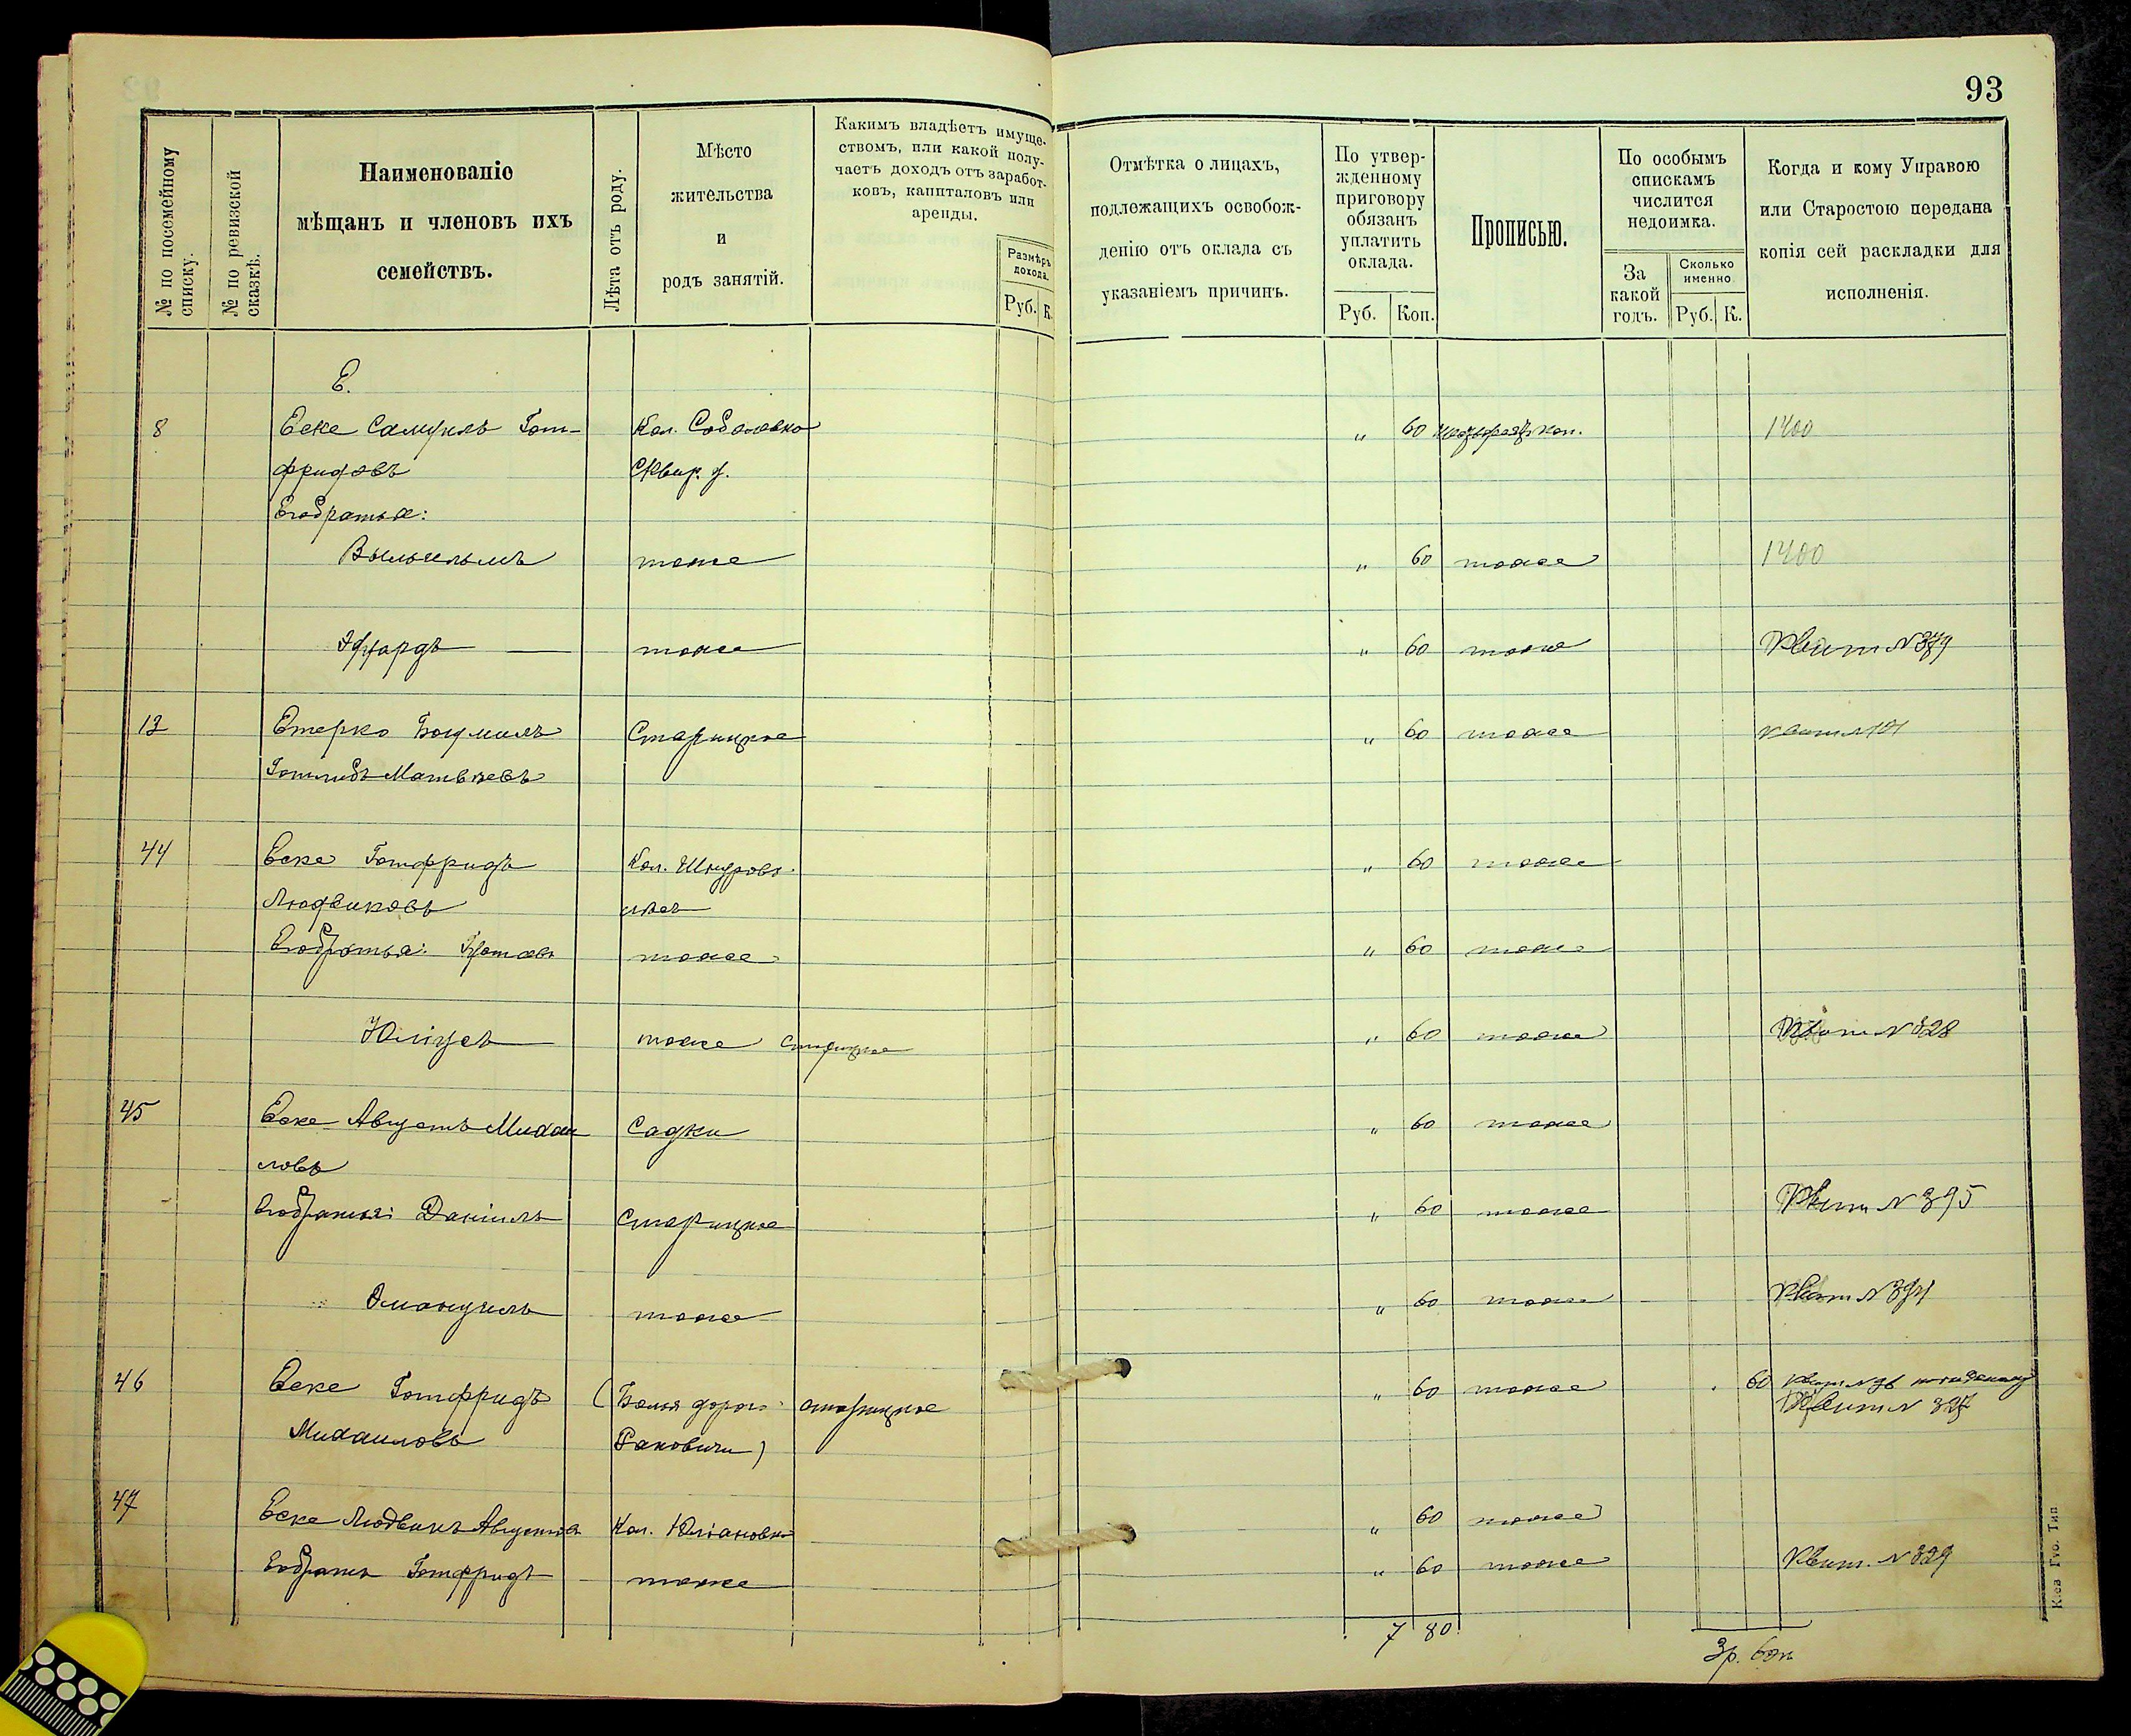 93
№ по посемейному списку.
№ по ревизской сказкѣ.
Наименованіе
мѣщанъ и членовъ ихъ
семействъ.
Лѣта отъ роду.
Мѣсто
жительства
и
родъ занятій.
Какимъ владѣетъ имуще-
ствомъ, или какой полу-
чаетъ доходъ отъ заработ-
ковъ, капиталовъ или
аренды.
Размѣръ
дохода.
Руб. К.
Отмѣтка о лицахъ,
подлежащихъ освобож-
денію отъ оклада съ
указаніемъ причинъ.
По утвер-
жденному
приговору
обязанъ
уплатить
оклада.
Руб. Коп.
Прописью.
По особымъ
спискамъ
числится
недоимка.
За
какой
годъ.
Сколько
именно
Руб. К.
Когда и кому Управою
или Старостою передана
копія сей раскладки для
исполненія.
Е.
8 Еске Самуилъ Гот- Кол. Соболовко „ 60 коп. 1400
фридовъ Сквир. у.
Его братья:
Вильгельмъ тоже „ 60 тоже 1400
Эдуардъ тоже „ 60 тоже Квит №379
12 Етерко Богумилъ Старицкое „ 60 тоже
Готлибъ Матвѣевъ
44 Еске Готфридъ Кол. „ 60 тоже
Людвиковъ
Его братья: тоже „ 60 тоже
Юліусъ тоже Старицкое „ 60 тоже Квит №328
45 Еске Августъ Михаи Садки „ 60 тоже
ловъ
Его братья: Даніилъ Старицкое „ 60 тоже Квит № 395
Эмануилъ тоже „ 60 тоже Квит №
46 Еске Готфридъ (Белья дорог. старицкое „ 60 тоже 60 Квит
Михаиловъ Раковичи) Квит № 327
47 Еске Людвикъ Августовъ Кол. Юліановка „ 60 тоже
Его братъ Готфридъ тоже „ 60 тоже Квит. № 329
7 80
3р. 60к
Кіев. Губ. Тип